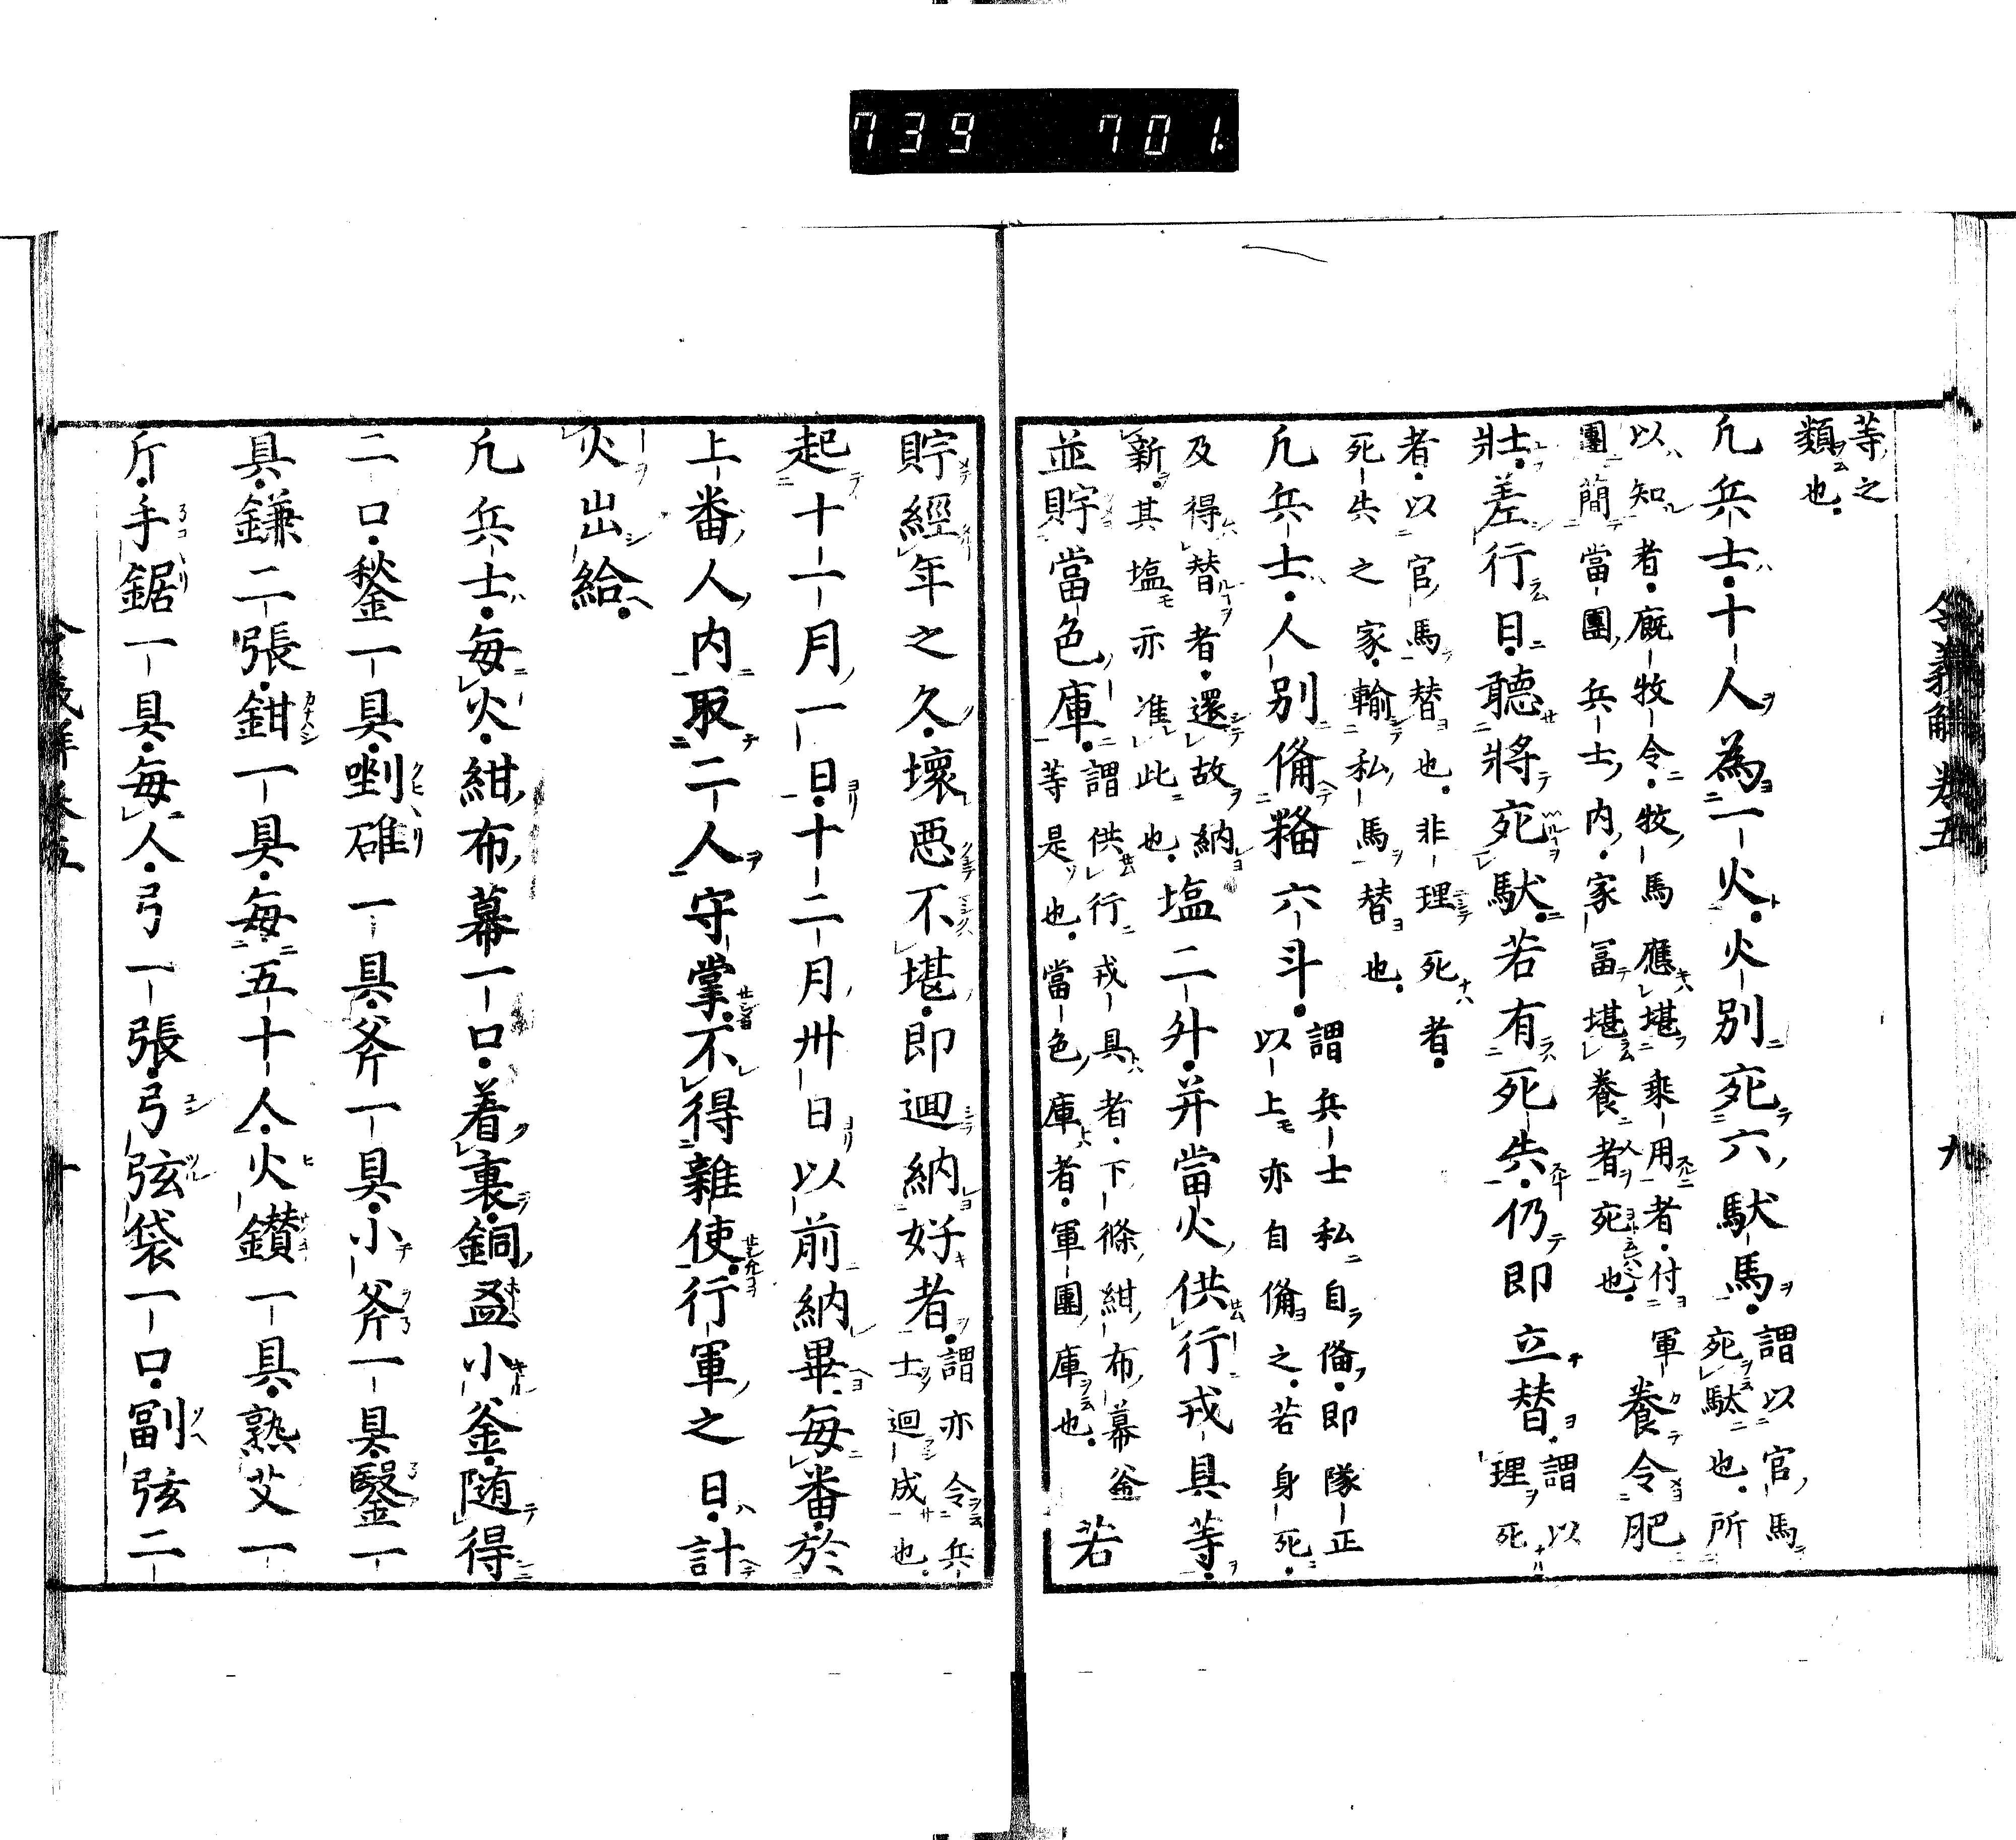 令義解　卷五　九
等之
類也。
凡兵士。十人為一火。火別宛六馱馬。謂以官馬
宛馱也。所
以知者。廐牧令。牧馬應堪乘用者。付軍
團簡當團兵士内。家冨堪養者宛也。養令肥
壯。差行日。聽將宛馱。若有死失。仍即立替。謂以
理死
者。以官馬替也。非理死者。
死失之家。輸私馬替也。
凡兵士。人別俻糒六斗。謂兵士私自俻。即隊正
以上亦自俻之。若身死。
及得替者。還故納
新。其塩亦准此也。塩二升。并當火供行戎具等。
並貯當色庫。謂供行戎具者。下條。紺布幕釜
等是也。當色庫者。軍團庫也。若
貯經年之久。壞惡不堪。即迴納好者。謂亦令兵
士迴成也。
起十一月一日。十二月卅日以前納畢。毎番。於
上番人内取二人守掌。不得雜使。行軍之日。計
火出給。
凡兵士。毎火。紺布幕一口。着裏。銅盆小釜。随得
二口。鍫一具。剉碓一具。斧一具。小斧一具。鑿一
具。鎌二張。鉗一具。毎五十人。火鑚一具。熟艾一
斤。手鋸一具。毎人。弓一張。弓弦袋一口。副弦二